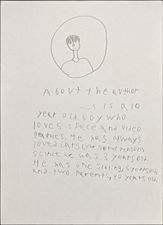 About the author
is a 10
year old boy who
loves space and video
games. He has always
loved cats (for some reason)
since he was 3 years old.
He has one sibling, 5 years old,
and two parents, 40 years old.